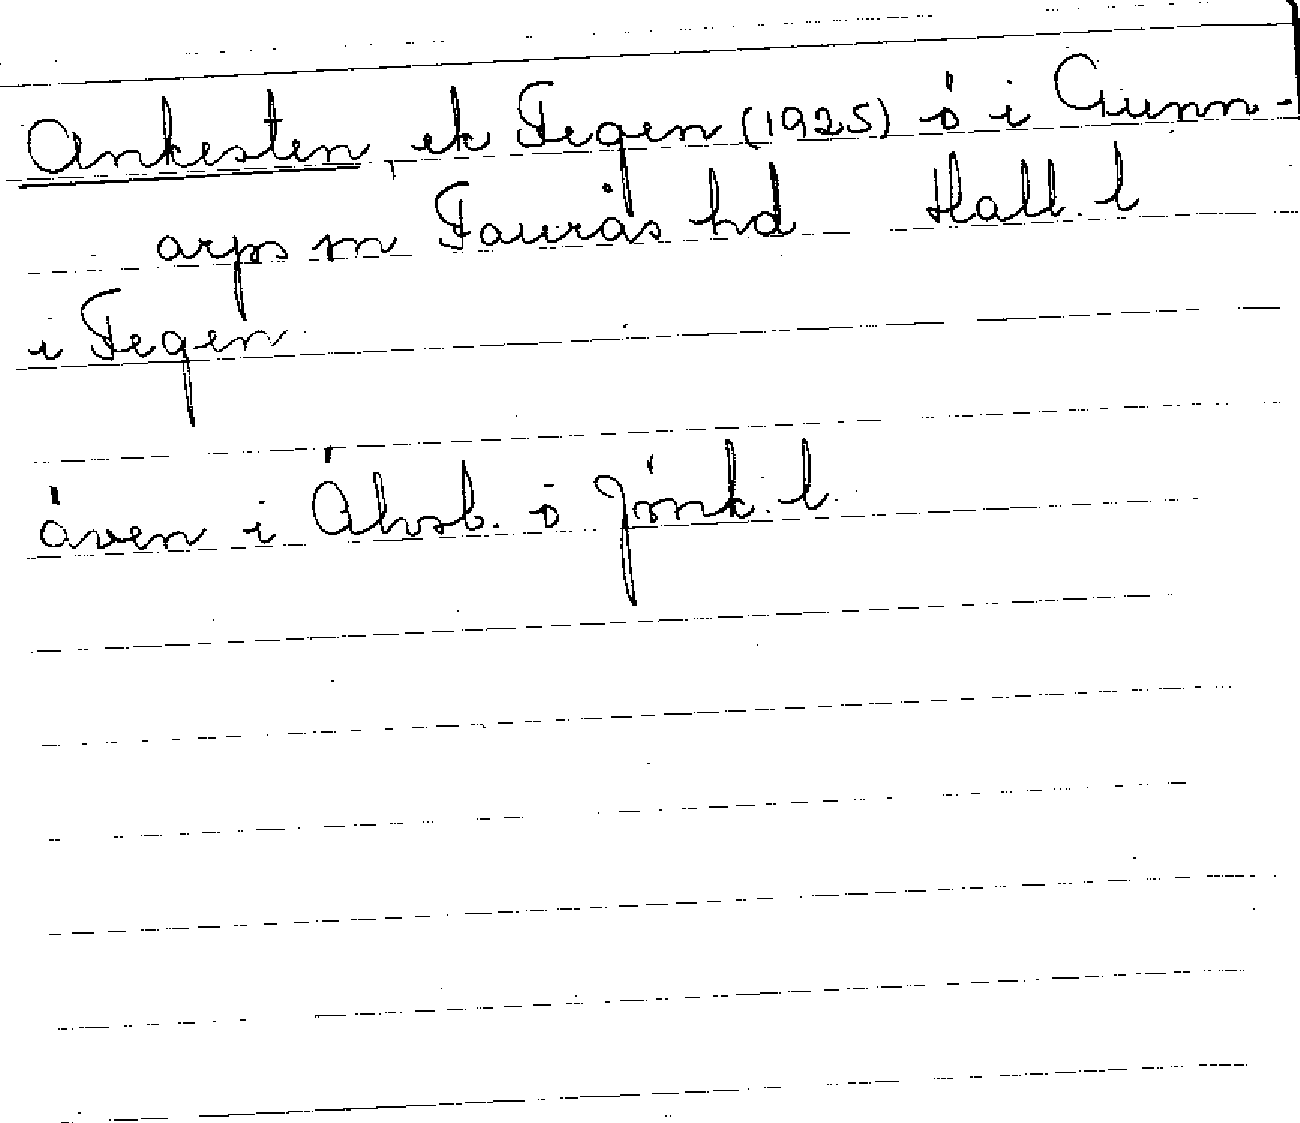 Ankesten, ek Fegen (1925) ö i Gunn-
arps sn Faurås hd Hall. l
i Fegen
även i Älvsb. o Jönk. l.